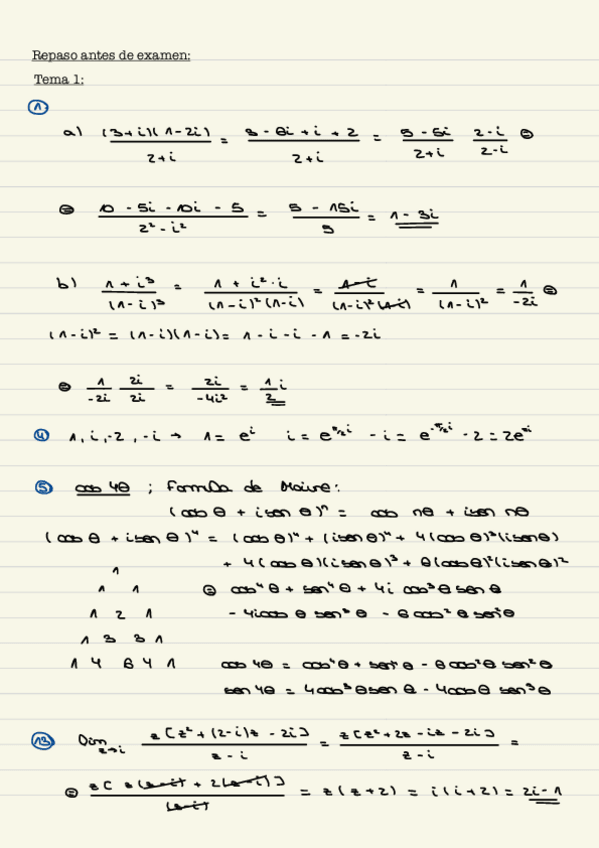 Repaso antes de examen:
Tema 1:
1.
a) (3+i)(1-2i)/(2+i) = (3 - 6i + i + 2)/(2+i) = (5 - 5i)/(2+i) (2-i)/(2-i) =
= (10 - 5i - 10i - 5)/(2² - i²) = (5 - 15i)/5 = 1 - 3i
b) (1 + i³)/(1-i)³ = (1 + i²·i)/((1-i)²(1-i)) = (1-i)/((1-i)²(1-i)) = 1/(1-i)² = 1/(-2i) =
(1-i)² = (1-i)(1-i) = 1 - i - i - 1 = -2i
= 1/(-2i) 2i/2i = 2i/(-4i²) = 1/2 i
4 1, i, -2, -i → 1 = e^i i = e^(π/2 i) - i = e^(-π/2 i) - 2 = 2e^(πi)
5 cos 4θ ; Formula de Moivre:
(cos θ + i sen θ)ⁿ = cos nθ + i sen nθ
(cos θ + i sen θ)⁴ = (cos θ)⁴ + (i sen θ)⁴ + 4(cos θ)³(i sen θ)
+ 4(cos θ)(i sen θ)³ + 6(cos θ)²(i sen θ)²
1
1 1 = cos⁴ θ + sen⁴ θ + 4i cos³ θ sen θ
1 2 1 - 4i cos θ sen³ θ - 6 cos² θ sen² θ
1 3 3 1
1 4 6 4 1 cos 4θ = cos⁴ θ + sen⁴ θ - 6 cos² θ sen² θ
sen 4θ = 4 cos³ θ sen θ - 4 cos θ sen³ θ
13 lim z→i z[z² + (2-i)z - 2i]/(z - i) = z[z² + 2z - iz - 2i]/(z - i) =
= z[z(z-i) + 2(z-i)]/(z-i) = z(z+2) = i(i+2) = 2i - 1